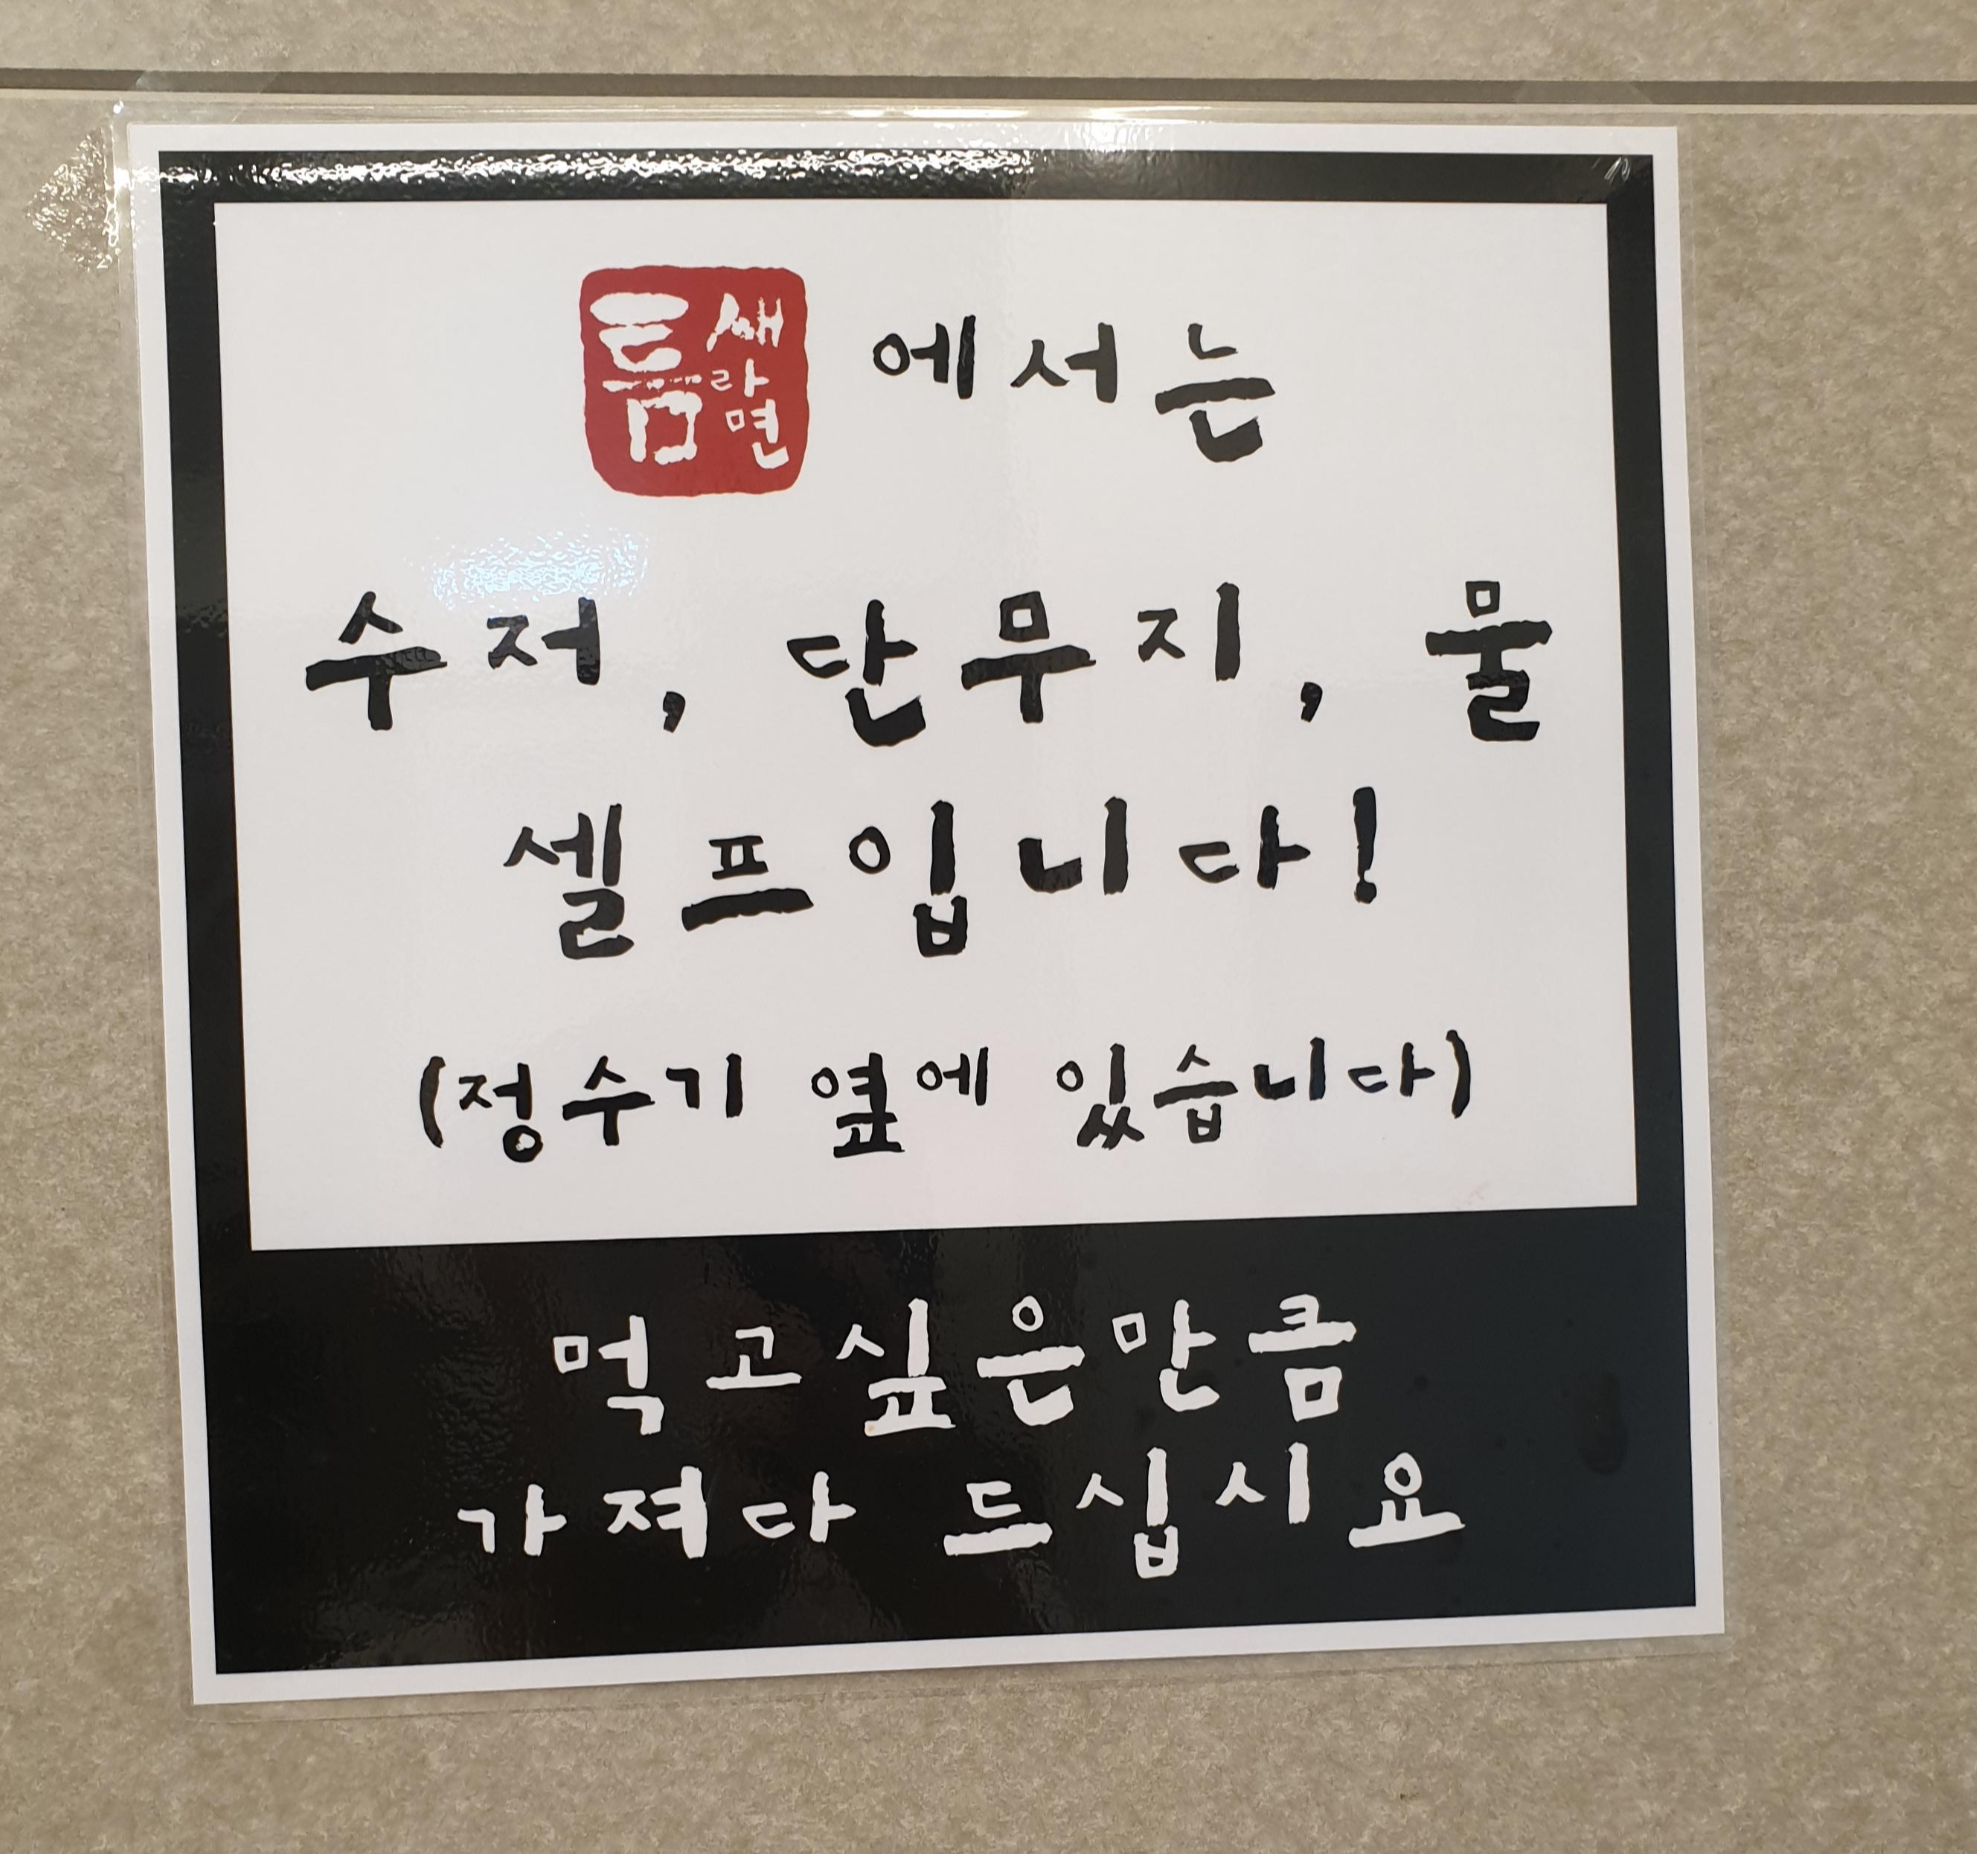 틈새라면 에서는
수저, 단무지, 물
셀프입니다!
(정수기 옆에 있습니다)
먹고싶은만큼
가져다 드십시요